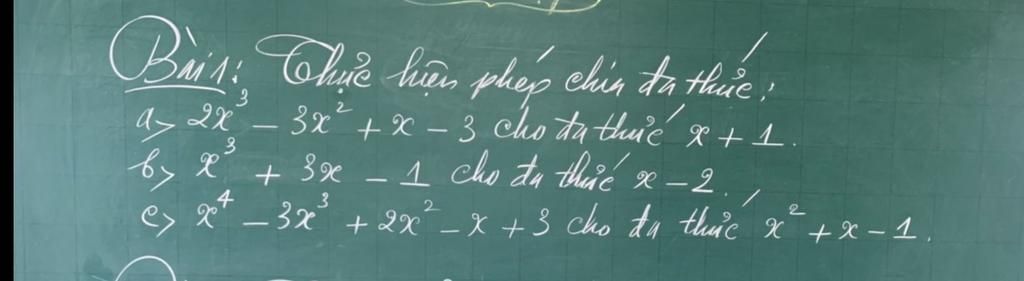 Bài 1: Thực hiện phép chia đa thức:
a> 2x³ - 3x² + x - 3 cho đa thức x + 1.
b> x³ + 3x - 1 cho đa thức x - 2.
c> x⁴ - 3x³ + 2x² - x + 3 cho đa thức x² + x - 1.